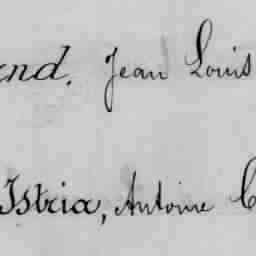 and, Jean Louis
Istria, Antoine C